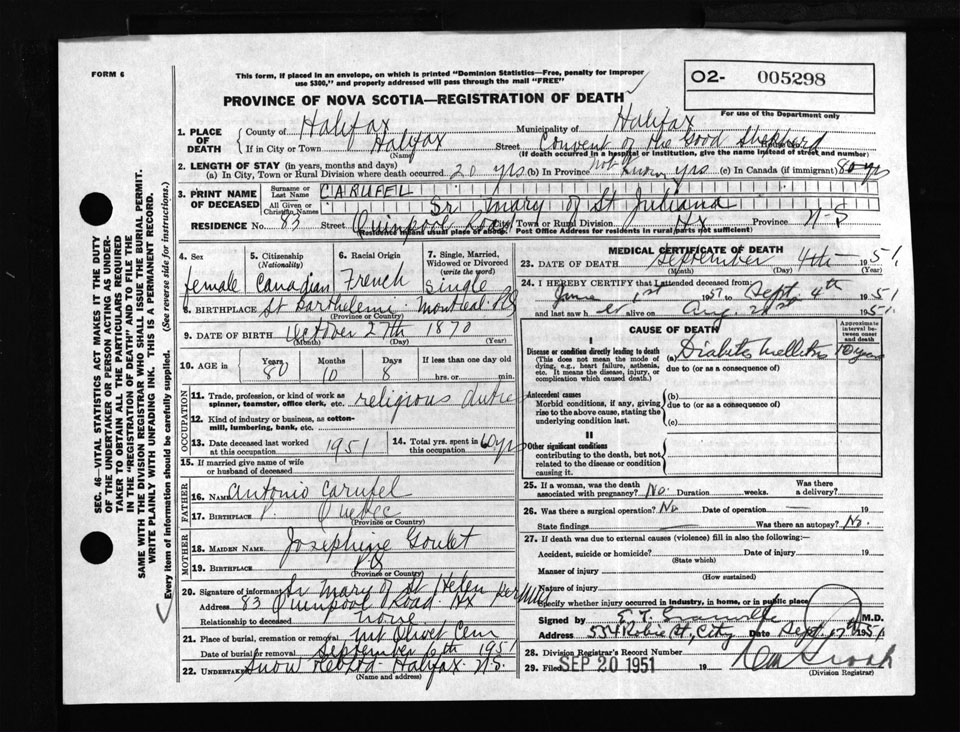 FORM 6
This form, if placed in an envelope, on which is printed "Dominion Statistics—Free, penalty for improper
use $300," and properly addressed will pass through the mail "FREE"
O2- 005298
For use of the Department only
PROVINCE OF NOVA SCOTIA—REGISTRATION OF DEATH
SEC. 46—VITAL STATISTICS ACT MAKES IT THE DUTY
OF THE UNDERTAKER OR PERSON ACTING AS UNDER-
TAKER TO OBTAIN ALL THE PARTICULARS REQUIRED
IN THE "REGISTRATION OF DEATH" AND TO FILE THE
SAME WITH THE DIVISION REGISTRAR WHO SHALL ISSUE THE BURIAL PERMIT.
WRITE PLAINLY WITH UNFADING INK. THIS IS A PERMANENT RECORD.
Every item of information should be carefully supplied. (See reverse side for instructions.)
1. PLACE OF DEATH County of Halifax Municipality of Halifax
If in City or Town Halifax Street Convent of the Good Shepherd
(Name) (If death occurred in a hospital or institution, give the name instead of street and number)
2. LENGTH OF STAY (in years, months and days)
(a) In City, Town or Rural Division where death occurred 20 yrs (b) In Province not known yrs (c) In Canada (if immigrant) 80 yrs
3. PRINT NAME OF DECEASED Surname or Last Name CARUFEL
All Given or Christian Names Sr Mary of St Juliana
RESIDENCE No. 83 Street Quinpool Road City, Town or Rural Division Hx Province N-S
Residence means usual place of abode. Post Office Address for residents in rural parts not sufficient)
4. Sex female
5. Citizenship (Nationality) Canadian
6. Racial Origin French
7. Single, Married, Widowed or Divorced (write the word) single
8. BIRTHPLACE St Barthelemi Montreal PQ
(Province or Country)
9. DATE OF BIRTH October 27th 1870
(Month) (Day) (Year)
10. AGE in Years 80 Months 10 Days 8 If less than one day old hrs. or min.
OCCUPATION
11. Trade, profession, or kind of work as spinner, teamster, office clerk, etc. religious
12. Kind of industry or business, as cotton-mill, lumbering, bank, etc.
13. Date deceased last worked at this occupation 1951
14. Total yrs. spent in 60 yrs
15. If married give name of wife or husband of deceased
FATHER
16. NAME Antonio Carufel
17. BIRTHPLACE P. Quebec
(Province or Country)
MOTHER
18. MAIDEN NAME Josephine Goulet
19. BIRTHPLACE P Q
(Province or Country)
20. Signature of informant Sr Mary of St Helen
Address 83 Quinpool Road Hx
Relationship to deceased none
21. Place of burial, cremation or removal Mt Olivet Cem
Date of burial or removal September 6th 1951
22. UNDERTAKER Snow Halifax N.S.
(Name and address)
MEDICAL CERTIFICATE OF DEATH
23. DATE OF DEATH September 4th 1951
(Month) (Day) (Year)
24. I HEREBY CERTIFY that I attended deceased from
June 1st 1951 to Sept. 4th 1951
and last saw h er alive on Aug. 1951
CAUSE OF DEATH
Approximate interval between onset and death
I
Disease or condition directly leading to death (a) Diabetes Mellitus 10 years
(This does not mean the mode of dying, e.g., heart failure, asthenia, etc. It means the disease, injury, or complication which caused death.
due to (or as a consequence of)
Antecedent causes (b)
Morbid conditions, if any, giving rise to the above cause, stating the underlying condition last.
due to (or as a consequence of)
(c)
II
Other significant conditions
contributing to the death, but not related to the disease or condition causing it.
25. If a woman, was the death associated with pregnancy? No. Duration weeks. Was there a delivery?
26. Was there a surgical operation? No Date of operation — 19
State findings — Was there an autopsy? No.
27. If death was due to external causes (violence) fill in also the following:—
Accident, suicide or homicide? Date of injury 19
(State which)
Manner of injury
(How sustained)
Nature of injury
Specify whether injury occurred in industry, in home, or in public place
Signed by M.D.
Address 534 Robie St, City Date Sept. 17th 1951
28. Division Registrar's Record Number
29. Filed SEP 20 1951 19
(Division Registrar)